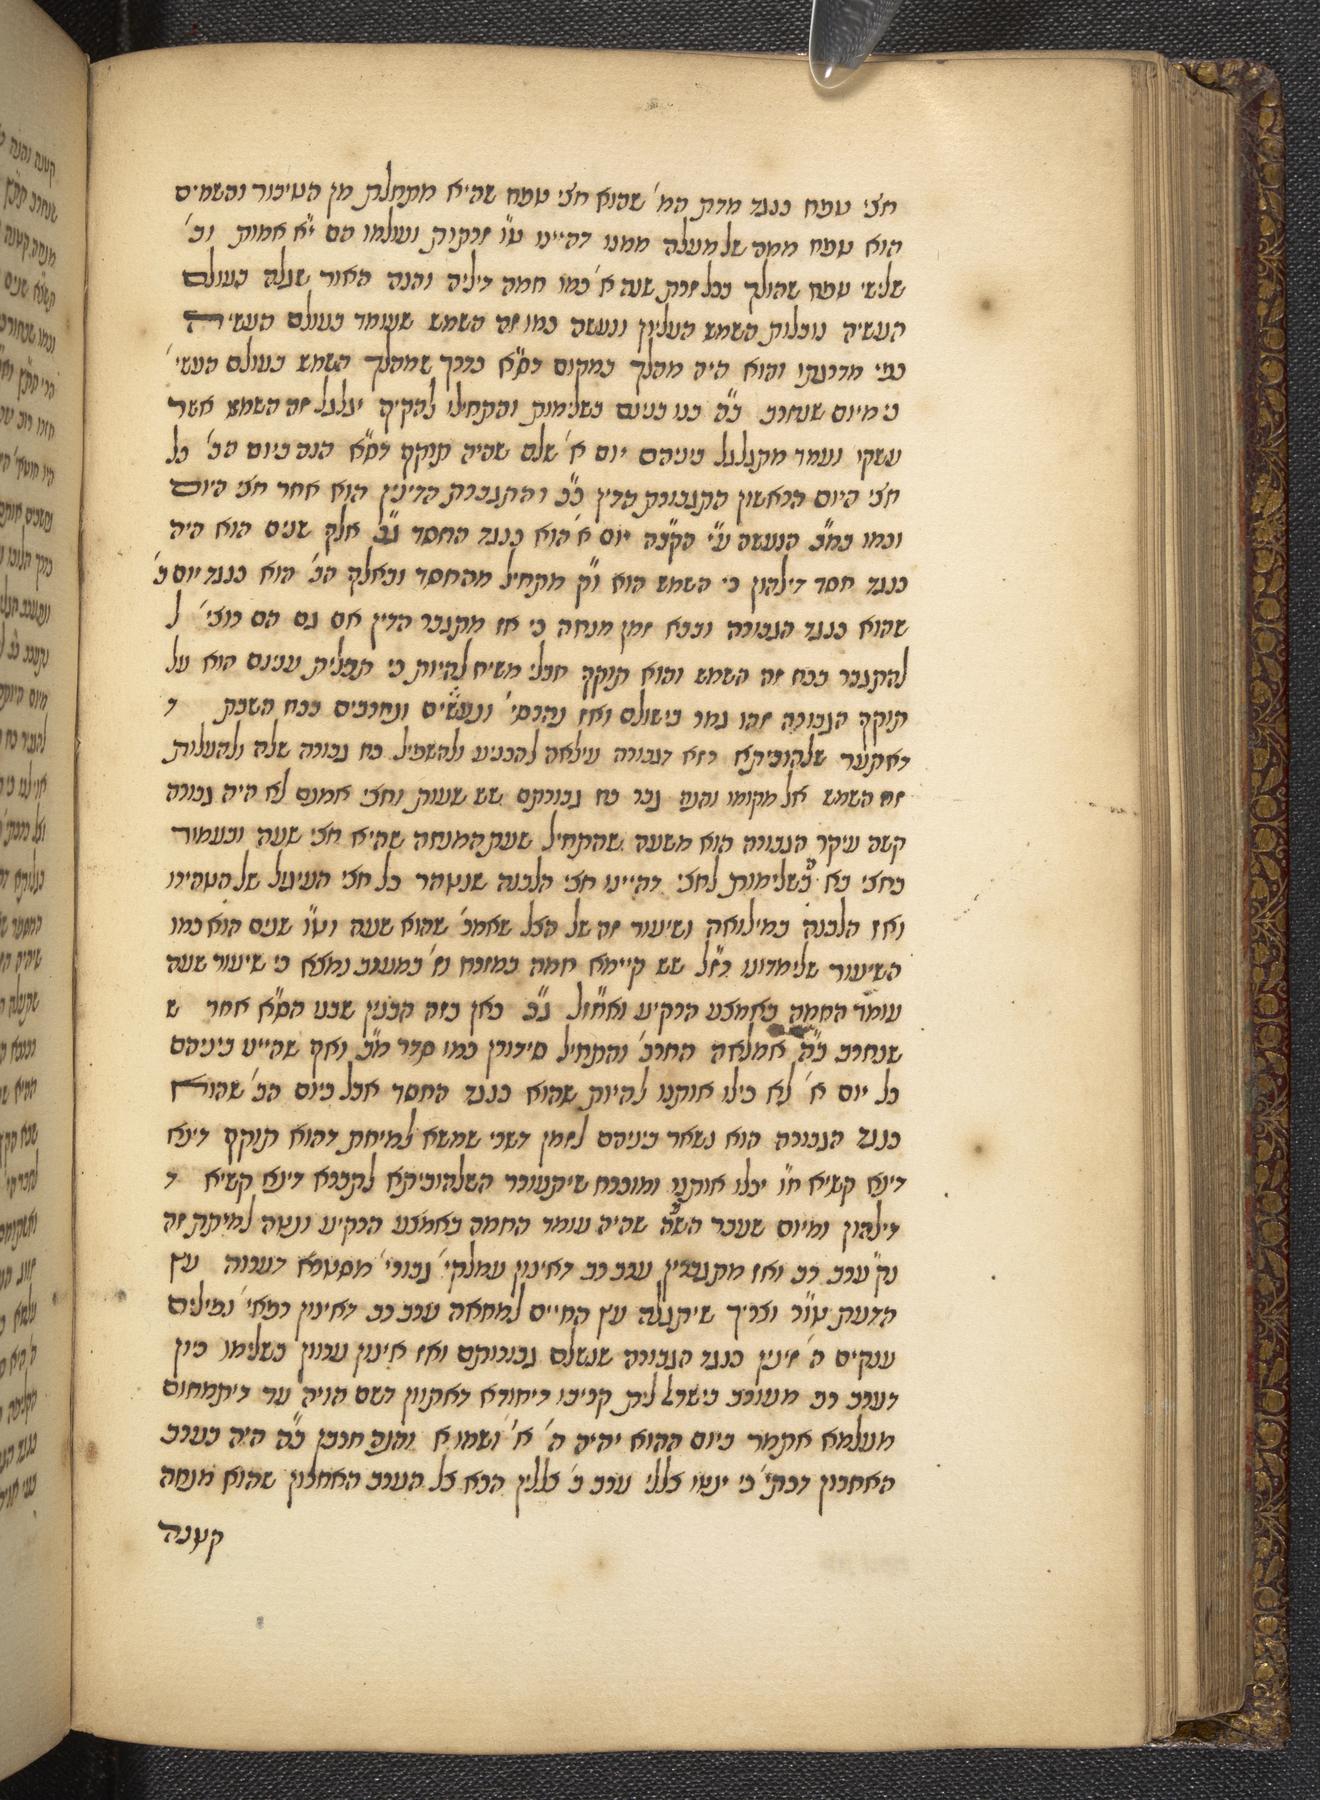 חצי טפח כנגד מדת המ' שהוא חצי טפח שהיא מתחלת מן הטיבור והשמים
הוא טפח ממה שלמעלה ממנו דהיינו ט"ו זרקות ועולמו הם י"א אמות וב'
שלישי טפח שהולך בכל זרת שנה א' כמו חמה דיליה והנה האור שגלה בעולם
העשיה נובלות השמש העליון ונעשה כמו זה השמש שעומד בעולם העשיה
כפי מדרגתו והוא היה מהלך במקום דס"א כדרך שמהלך השמש בעולם העשי'
כי מיום שנחרב ב"ה בנו בנינם בשלימות והתחילו להקיף יגלגל זה השמש אשר
עשקו ועמד מתגלגל ביניהם יום א' שלם שהיה תוקף דס"א הנה ביום הב' כל
חצי היום הראשון התגבורת הדין כ"כ והתגברת הדינין הוא אחר חצי היום
וכמו במ"ב הנעשה ע"י הקב"ה יום א' הוא כנגד החסד ג"כ אלף שנים הוא היה
כנגד חסד דילהון כי השמש הוא ו"ק מתחיל מהחסד ובאלף הב' הוא כנגד יום ב'
שהוא כנגד הגבורה ובבא זמן מנחה כי אז מתגבר הדין אם גם הם רוצי' ל
להתגבר בכח זה השמש והוא תוקף חבלי משיח להיות כי תכלית ענינם הוא על
תוקף הגבורה זהו גמר בישולם ואז נהרסי' ונעשים ונחרבים בכח השבת ד
דאתער שלהוביתא רזא דגבורה עילאה להכניע ולהשפיל כח גבורה שלה ולהעלות
זה השמש אל מקומו והנה גבר כח גבורתם שש שעות וחצי אמנם לא היה גבורה
קשה עיקר הגבורה הוא משעה שהתחיל שעת המנחה שהיא חצי שעה ובעמוד
בחצי בא בשלימות לחצי דהיינו חצי הלבנה שנטהר כל חצי העיגול של הטהירו
ואז הלבנה במילואה ושיעור זה של הצל שאמר' שהוא שעה וט"ו שנים הוא כמו
השיעור שלימדונו רז"ל שש קיימא חמה במזרח וז' במערב נמצא כי שיעור שעה
עומד החמה באמצע הרקיע ואח"ז"ל ג"כ כאן בזה הבנין שבע הס"א אחר ש
שנחרב ב"ה אמלאה החרב' והתחיל סידורן כמו סדר מ"ב ואף שהייט ביניהם
כל יום א' לא בילו אותנו להיות שהוא כנגד החסד אבל ביום הב' שהוא
כנגד הגבורה הוא נשאר ביניהם לזמן דשרי שמשא למיחת דהוא תוקף דינא
דינא קשיא ח"ו יכלו אותנו ומוכרח שיתעורר השלהוביתא לתברא דינא קשיא ד
דילהון ומיום שעבר הש"ה שהיה עומד החמה באמצע הרקיע ונטה למיתת זה
נק' ערב רב ואז מתגברין ערב רב דאינון עמלקי' גבורי' מסטרא דערוה עץ
הדעת טו"ר וצריך שיתגלה עץ החיים למחאה ערב רב דאינון רפאי' נפילים
ענקים ה' זינין כנגד הגבורה שנשלם גבורותם ואז אינון ערווין בשלימו כיון
דערב רב מעורב בישראל לית קריבו דיחודא דאתוון דשם הויה עד דיתמחון
מעלמא אתמר ביום ההוא יהיה ה' א' ושמו א והנה חרבן ב"ה היה בערב
האחרון דכתי' כי ינטו צללי ערב ב' צללין הבא צל הערב האחרון שהוא מנחה
קטנה